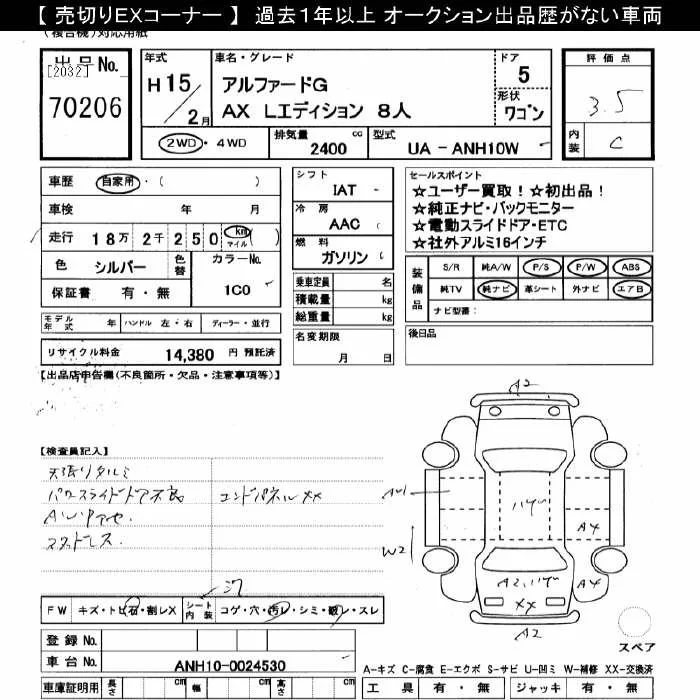 【 売切りEXコーナー 】 過去1年以上 オークション出品歴がない車両
(複合機)対応用紙
出品No.
[2032]
70206
年式
H15/2月
車名・グレード
アルファードG
AX Lエディション 8人
ドア
5
形状
ワゴン
2WD・4WD
排気量
2400 cc
型式
UA - ANH10W
評価点
3.5
内装
C
車歴 自家用・( )
車検 年 月
走行 18万 2千 250 km マイル ( )
色 シルバー 色替
カラーNo.
1C0
保証書 有・無
シフト
IAT -
冷房
AAC
燃料
ガソリン
乗車定員 名
積載量 kg
総重量 kg
名変期限
月 日
セールスポイント
☆ユーザー買取!☆初出品!
☆純正ナビ・バックモニター
☆電動スライドドア・ETC
☆社外アルミ16インチ
装備品
S/R 純A/W P/S P/W ABS
純TV 純ナビ 革シート 外ナビ エアB
ナビ型番:
後日品
モデル年式 年 ハンドル 左・右 ディーラー・並行
リサイクル料金 14,380 円 預託済
【出品店申告欄(不良箇所・欠品・注意事項等)】
【検査員記入】
天張りタルミ
パワースライドドア不良 エンドパネルXX
スタッドレス
A2
A4
W2
A4
XX
A2
FW キズ・トビ石・割レX
シート内装 コゲ・穴・汚レ・シミ・破レ・スレ
登録No.
車台No. ANH10-0024530
車庫証明用 長さ cm 幅 cm 高さ cm
スペア
A-キズ C-腐食 E-エクボ S-サビ U-凹ミ W-補修 XX-交換済
工具 有・無 ジャッキ 有・無